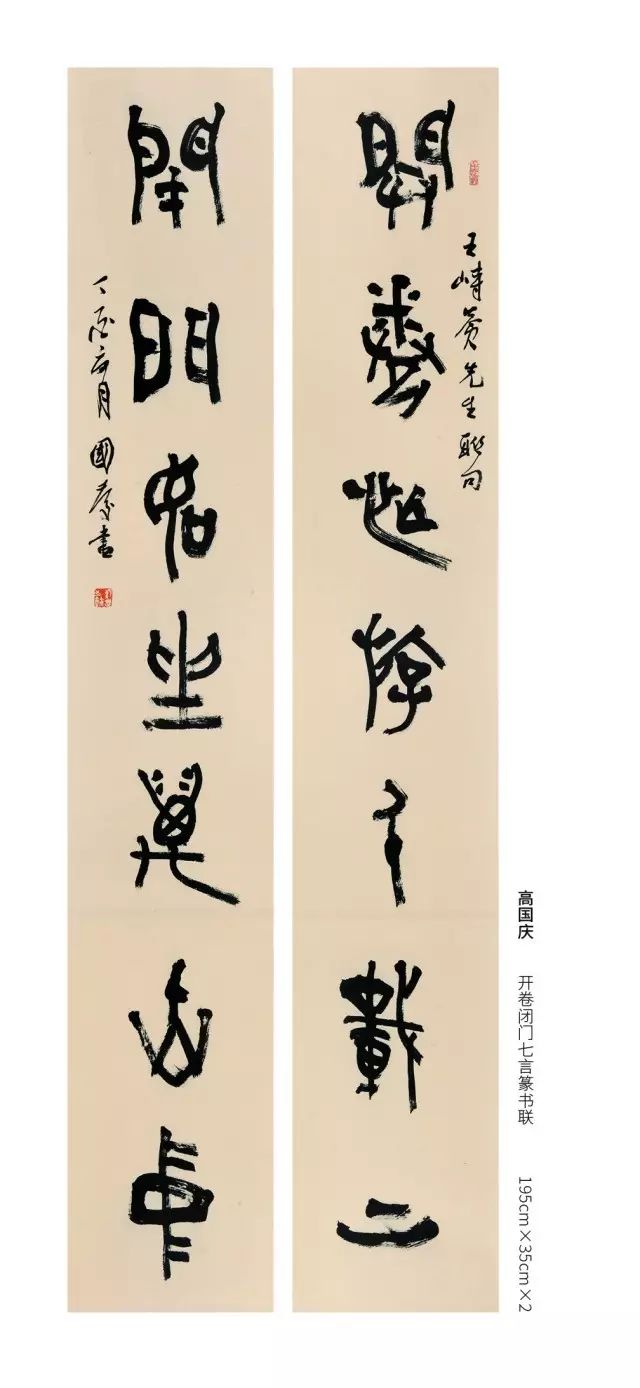 開卷游千載上
王先生聯句
閉門如坐萬山中
丁酉月國慶書
高国庆 开卷闭门七言篆书联 195cm×35cm×2